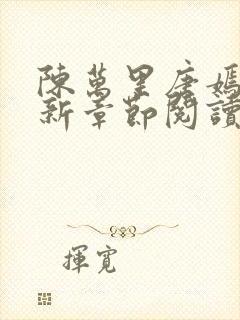 陳萬里唐嫣
新章節閱讀
揮寬